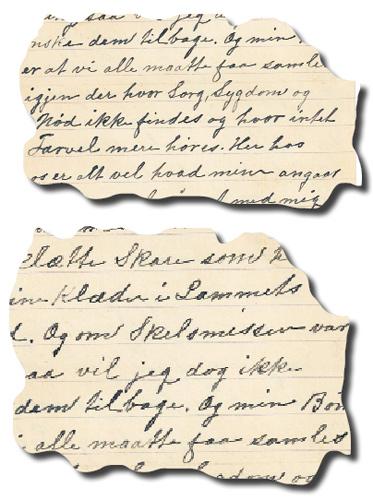 saa vil jeg
nske dem tilbage. Og min
er at vi alle maatte faa samles
igjen der hvor Sorg, Sygdom og
Nød ikke findes og hvor intet
Farvel mere høres. Her hos
os er alt vel hvad min angaar
med mig
elætte Skare som
ine Klæder i Lammets
d. Og om Skelsmissen var
aa vil jeg dog ikke
dem tilbage. Og min Bøn
i alle maatte faa samles